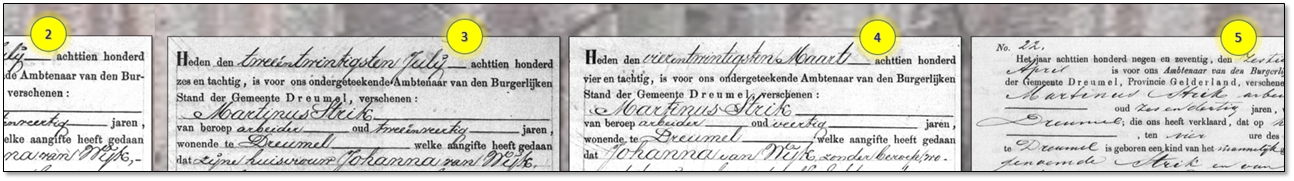 2
lij achttien honderd
de Ambtenaar van den Bur-
verschenen :
jaren ,
welke aangifte heeft gedaan
na van Wijk,
3
Heden den tweeëntwintigsten Julij achttien honderd
zes en tachtig, is voor ons ondergeteekende Ambtenaar van den Burgerlijken
Stand der Gemeente Dreumel, verschenen :
Martinus Strik
van beroep arbeider oud tweeënveertig jaren,
wonende te Dreumel welke aangifte heeft gedaan
dat zijne huisvrouw Johanna van Wijk,
4
Heden den vierentwintigsten Maart achttien honderd
vier en tachtig, is voor ons ondergeteekende Ambtenaar van den Burgerlijken
Stand der Gemeente Dreumel, verschenen :
Martinus Strik
van beroep arbeider oud veertig jaren,
wonende te Dreumel welke aangifte heeft gedaan
dat Johanna van Wijk, zonder beroep, wo-
5
No. 22.
Het jaar achttien honderd negen en zeventig, den
April is voor ons Ambtenaar van den Burgerli
der Gemeente Dreumel, Provincie Gelderland, verschene
Martinus Strik arbei
oud zes en dertig jaren,
Dreumel; die ons heeft verklaard, dat op
, ten vier ure des
te Dreumel is geboren een kind van het mannelijk g
genoemde Strik en van